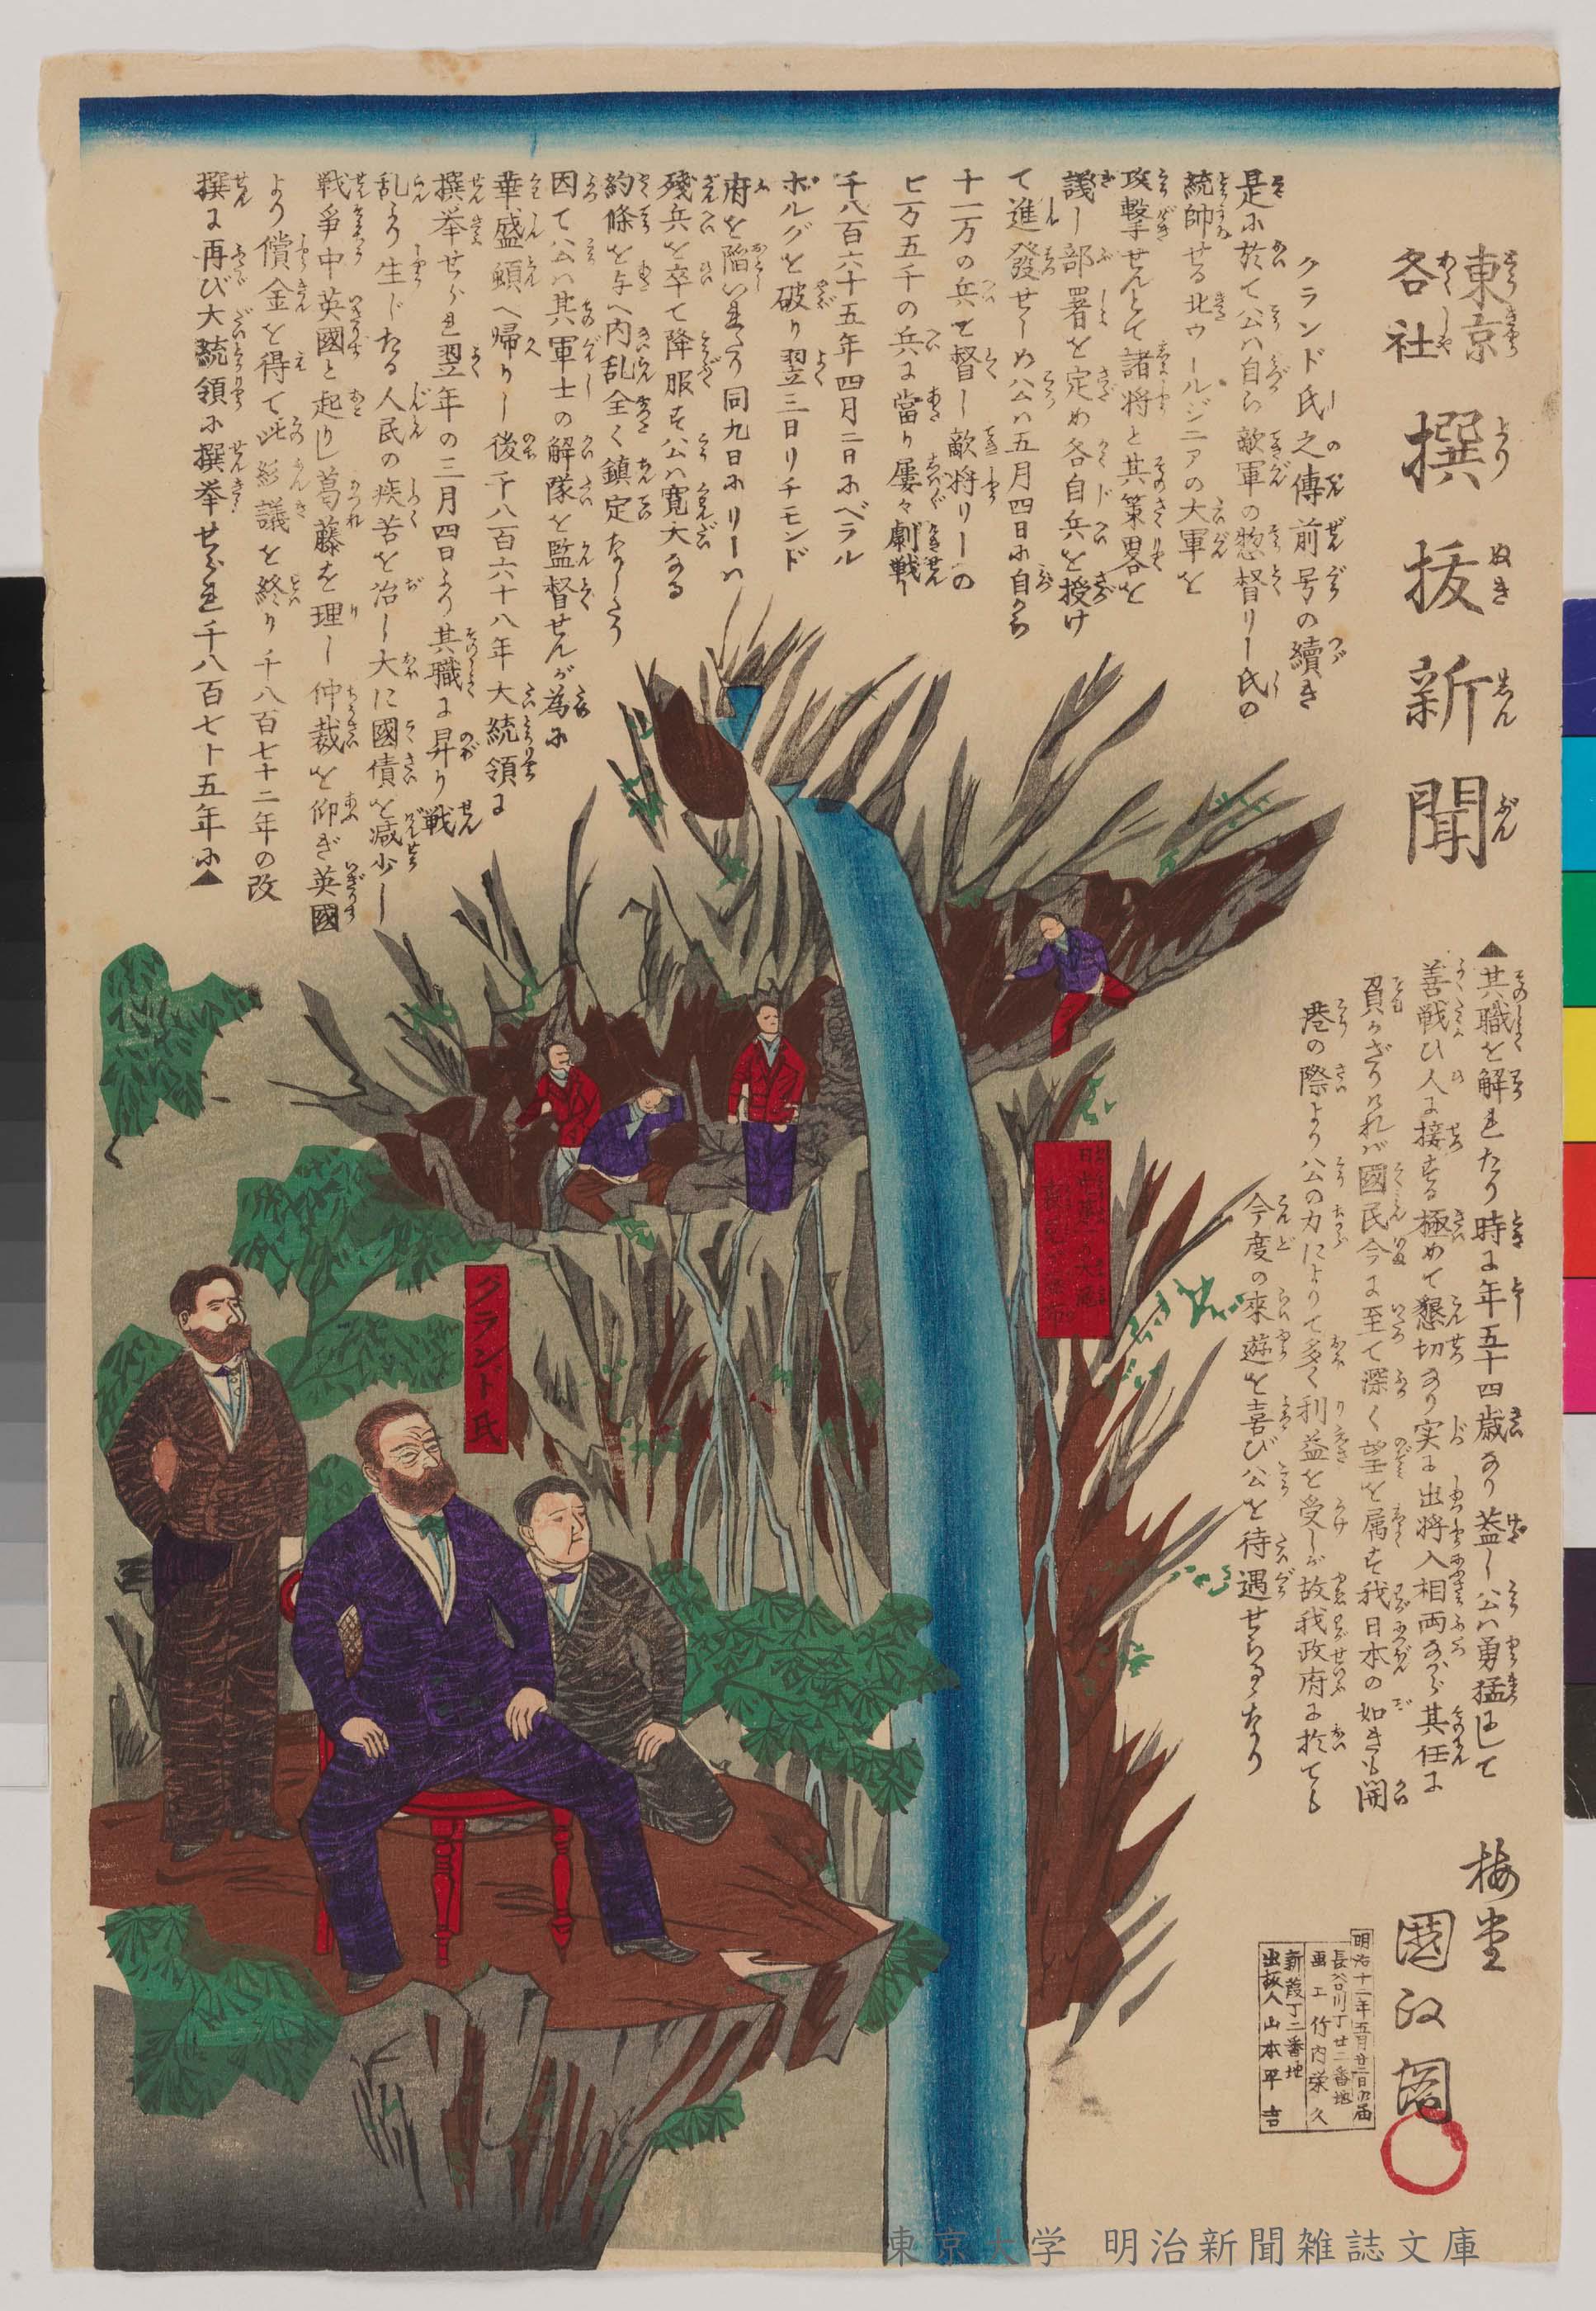 東京
各社
撰抜新聞
クランド氏之傳前号の續き
是に於て公ハ自ら敵軍の惣督リー氏の
統帥せる北ウールジニアの大軍を
攻撃せんとて諸将と其策畧を
議し部署を定め各自兵を授け
て進發せしめ公ハ五月四日に自から
十二万の兵を督し敵将リーの
七万五千の兵に當り屢々劇戦し
千八百六十五年四月二日にベテル
ボルグを破り翌三日リチモンド
府を陥いれたり同九日にリーハ
残兵を卒て降服す公ハ寛大なる
約條を与へ内乱全く鎮定なしたり
因て公ハ其軍士の解隊を監督せんが為に
華盛頓へ帰りし後千八百六十八年大統領に
撰挙せられ翌年の三月四日より其職に昇り戦
乱より生じたる人民の疾苦を治し大に國債を减少し
戦爭中英國と起りし葛藤を理し仲裁を仰ぎ英國
より償金を得て此 議を終り千八百七十二年の改
撰に再び大統領に撰挙せられ千八百七十五年に▲
▲其職を解れたり時に年五十四歳なり蓋し公ハ勇猛にして
善戦ひ人に接する極めて懇切なり実に出将入相両ながら其任に
負かざりけれバ國民今に至て深く望を属す我日本の如きも開
港の際より公の力によりて多く利益を受しが故我政府に於ても
今度の來遊を喜び公を待遇せらるゝなり
グラント氏
梅堂
國政画
明治十二年五月廿二日御届
長谷川丁廿二番地
画工 竹内栄久
新葭丁二番地
出板人 山本平吉
東京大学 明治新聞雑誌文庫